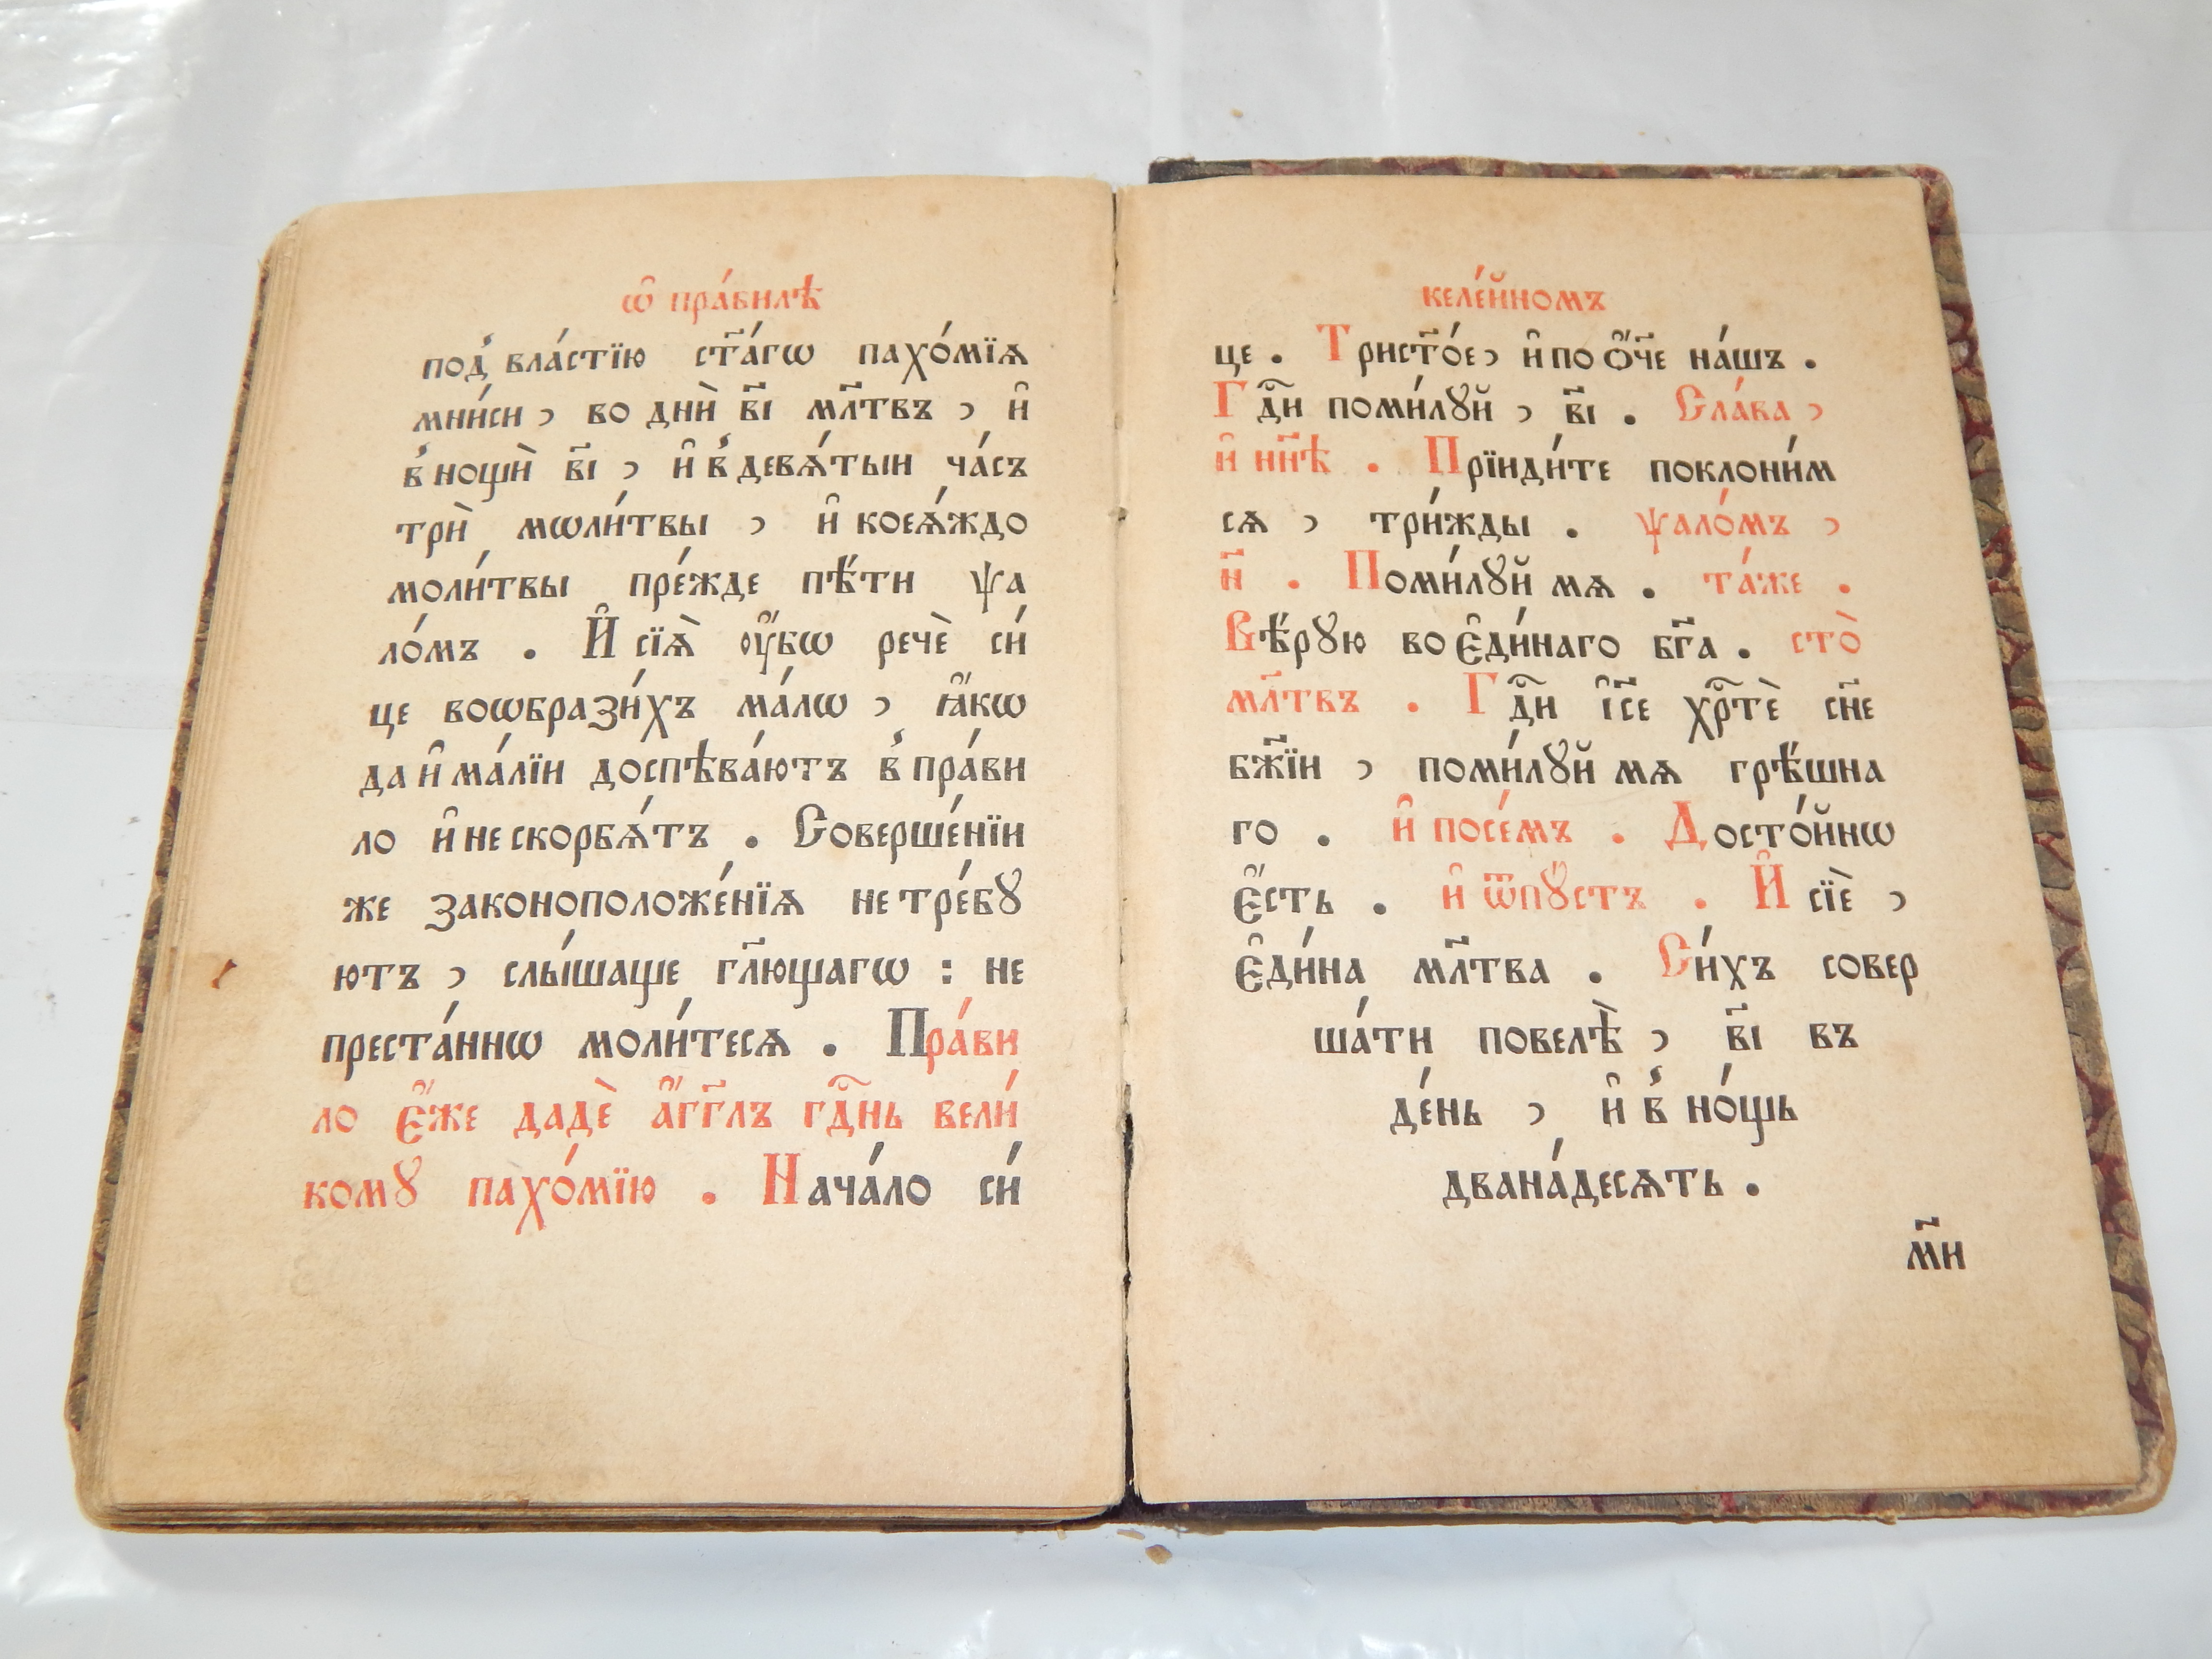 ѡ҆ пра́вилѣ
под̾ вла́стїю ст҃а́гѡ пахо́мїѧ
мни́си , во днѝ в҃і мл҃твъ , и҆
в̾ нощѝ в҃і , и҆ в̾ девѧ́тыи ча́съ
трѝ мѡли́твы , и҆ коеѧ́ждо
моли́твы пре́жде пѣ́ти ѱа
ло́мъ . И҆ сїѧ̀ ᲂу҆́бѡ речѐ си́
це воѡбрази́хъ ма́лѡ , ꙗ҆́кѡ
да и҆ ма́лїи доспѣва́ютъ в̾ пра́ви
ло и҆ не скорбѧ́тъ . Соверше́нїи
же законоположе́нїѧ не тре́бꙋ
ютъ , слы́шаще гл҃ющагѡ : не
преста́ннѡ моли́тесѧ . Пра́ви
ло є҆́же дадѐ а҆́гг҃лъ гд҇нь вели́
комꙋ пахо́мїю . Нача́ло си́
келе́йномъ
це . Трист҃о́е , и҆ по ѻ҆́ч҃е на́шъ .
Гд҇и поми́лꙋй , в҃і . Сла́ва ,
и҆ нн҃ѣ . Прїиди́те поклони́м
сѧ , три́жды . ѱало́мъ ,
н҃ . Поми́лꙋй мѧ . та́же .
Вѣ́рꙋю во є҆ди́наго бг҃а . сто̀
мл҃твъ . Гд҇и і҆с҃е хр҇тѐ сн҃е
бж҃їи , поми́лꙋй мѧ грѣ́шна
го . и҆ посе́мъ . Досто́йнѡ
є҆́сть . и҆ ѿпꙋ́стъ . И҆ сїѐ ,
є҆ди́на мл҃тва . Си́хъ совер
ша́ти повелѣ̀ , в҃і въ
де́нь , и҆ в̾ но́щь
двана́десѧть .
м҃и